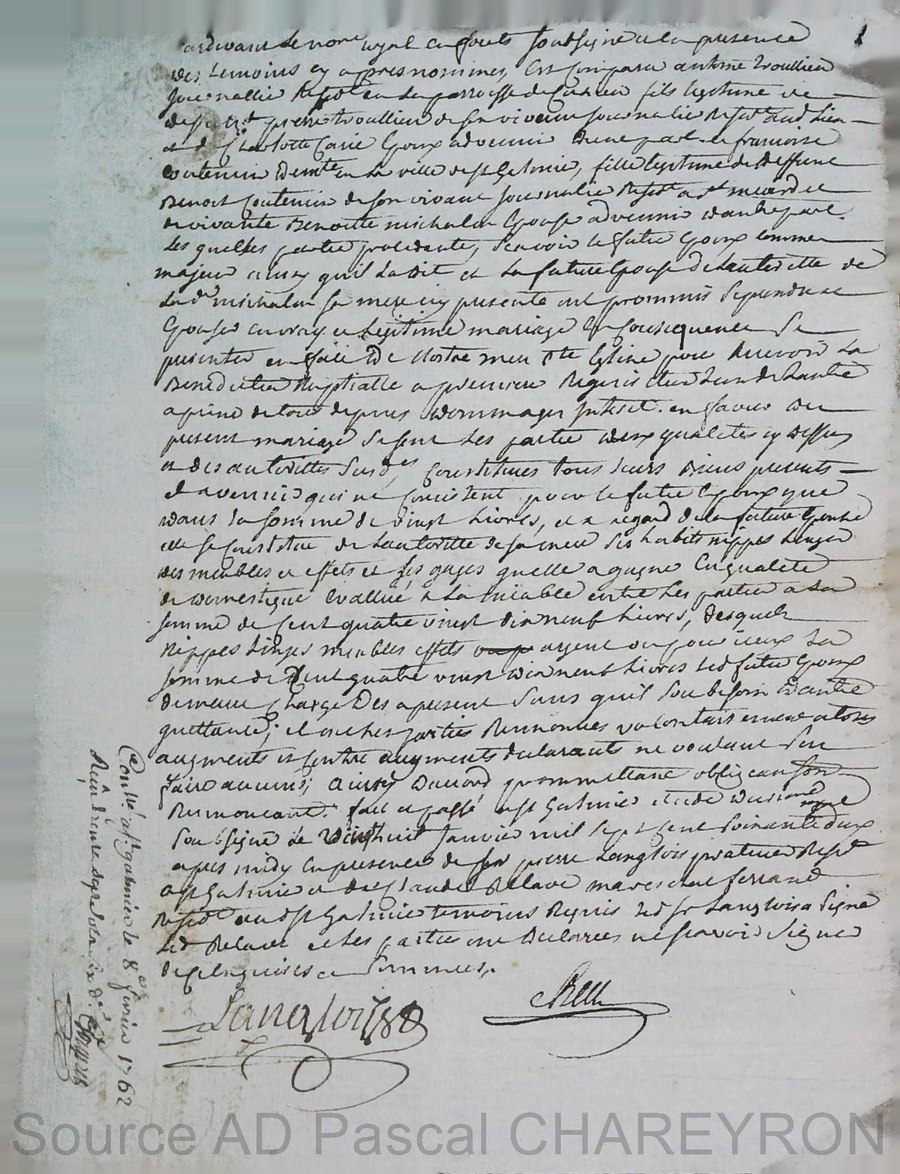 1
pardevant le nore royal en forets soussigné et en presence
des temoins cy apres nommés, est comparu antoine troullieu
journallié Residt en la parroisse de fils legitime de
deffunt pierre troullieu de son vivant journalié Residt aud lieu
et de epoux advenir d'une part, et francoise
coutenson demte en la ville de st Galmié, fille legitime de deffunt
Benoit coutenson de son vivant journalié Residt a st meard et
de vivante Benoite michalon Epouse advenir d'autre part.
Les quelles partie procedente, scavoir le futur Epoux comme
majeur ainsy quil la dit et la future Epouse de lautoritte de
lad michalon sa mere icy presente ont prommis se prendre
Epouses en vray et legitime mariage En consequence se
presenter en face de nostre mere ste Eglise pour Recevoir la
Benediction Nuptialle a premiere Requis de lun de lautre
a peine de tous depens dommages interet. en faveur du
present mariage se sont les partie deux qualités cy dessus
et des autorittes susdes constitues tous leurs Biens presents
et avenir qui ne consistent pour le futur Epoux que
dans la somme de vingt livres, et a regard de la future Epouse
elle se constitue de lautoritte de sa mere ses habits nippes linges
des meubles et effets et ses gages quelle a gagné En qualité
de domestique Evallué a la miable entre les partie a la
somme de cent quatre vingt dix neuf livres, desquels
Nippes linges meubles effets argent ou pour iceux la
somme de Cent quatre vingt dix neuf livres led futur Epoux
demeure charge Des a present sans quil soit besoin d'autre
quittance; et ont les parties Renoncées volontairement a tous
augments et contre augments declarants ne voulant sen
faire aucuns; Ainsy Daccord prommettant obligeant
Renoncant. fait et passé a st Galmier etude du nore royal
soubsigné le vingt huit Janvier mil sept cent soixante deux
apres midy en presence de sr pierre Langlois praticien Residt
a st Galmié et de claude Relave mareschal ferrant
Residt aud st Galmié temoins Requis led sr Langlois a signé
led Relave et les partie ont declarees ne scavoir signer
de ce Enquises et sommées.
Langlois
Conlle a st galmier le 8e fevrier 1762
Reçu